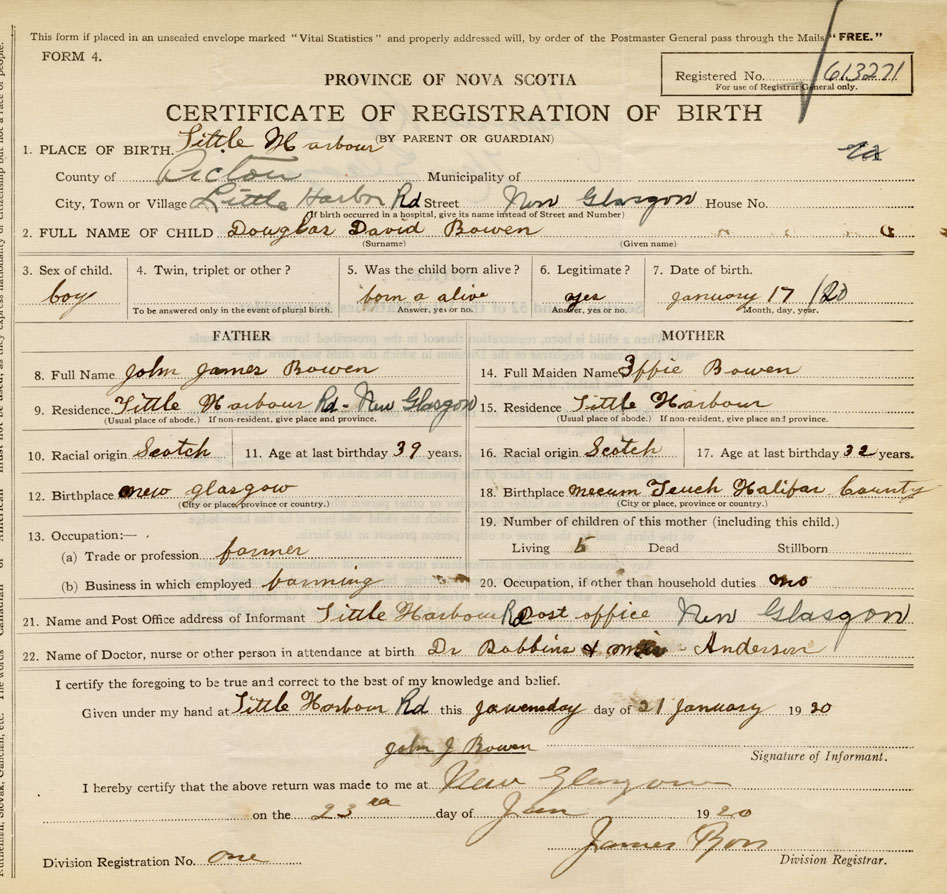 This form if placed in an unsealed envelope marked "Vital Statistics" and properly addressed will, by order of the Postmaster General pass through the Mails "FREE."
FORM 4.
PROVINCE OF NOVA SCOTIA
Registered No. 613271
For use of Registrar General only.
CERTIFICATE OF REGISTRATION OF BIRTH
(BY PARENT OR GUARDIAN)
1. PLACE OF BIRTH. Little Harbour
County of Pictou Municipality of
City, Town or Village Little Harbor Rd Street New Glasgow House No.
(If birth occurred in a hospital, give its name instead of Street and Number)
2. FULL NAME OF CHILD Douglas David Bowen
(Surname) (Given name)
3. Sex of child. 4. Twin, triplet or other? 5. Was the child born alive? 6. Legitimate? 7. Date of birth.
boy born a alive yes January 17 /20
To be answered only in the event of plural birth. Answer, yes or no. Answer, yes or no. Month, day, year.
FATHER MOTHER
8. Full Name John James Bowen 14. Full Maiden Name Effie Bowen
9. Residence. Little Harbour Rd - New Glasgow 15. Residence Little Harbour
(Usual place of abode.) If non-resident, give place and province. (Usual place of abode.) If non-resident, give place and province.
10. Racial origin Scotch 11. Age at last birthday 39 years. 16. Racial origin Scotch 17. Age at last birthday 32 years.
12. Birthplace new glasgow 18. Birthplace Mecum Teuch Halifax County
(City or place, province or country.) (City or place, province or country.)
13. Occupation:— 19. Number of children of this mother (including this child.)
(a) Trade or profession farmer Living 5 Dead Stillborn
(b) Business in which employed farming 20. Occupation, if other than household duties no
21. Name and Post Office address of Informant Little Harbour Rd post office New Glasgow
22. Name of Doctor, nurse or other person in attendance at birth Dr Robbins & Anderson
I certify the foregoing to be true and correct to the best of my knowledge and belief.
Given under my hand at Little Harbour Rd this day of 21 January 1920
John J Bowen
Signature of Informant.
I hereby certify that the above return was made to me at New Glasgow
on the 23rd day of Jan 1920
James Ross
Division Registration No. one Division Registrar.